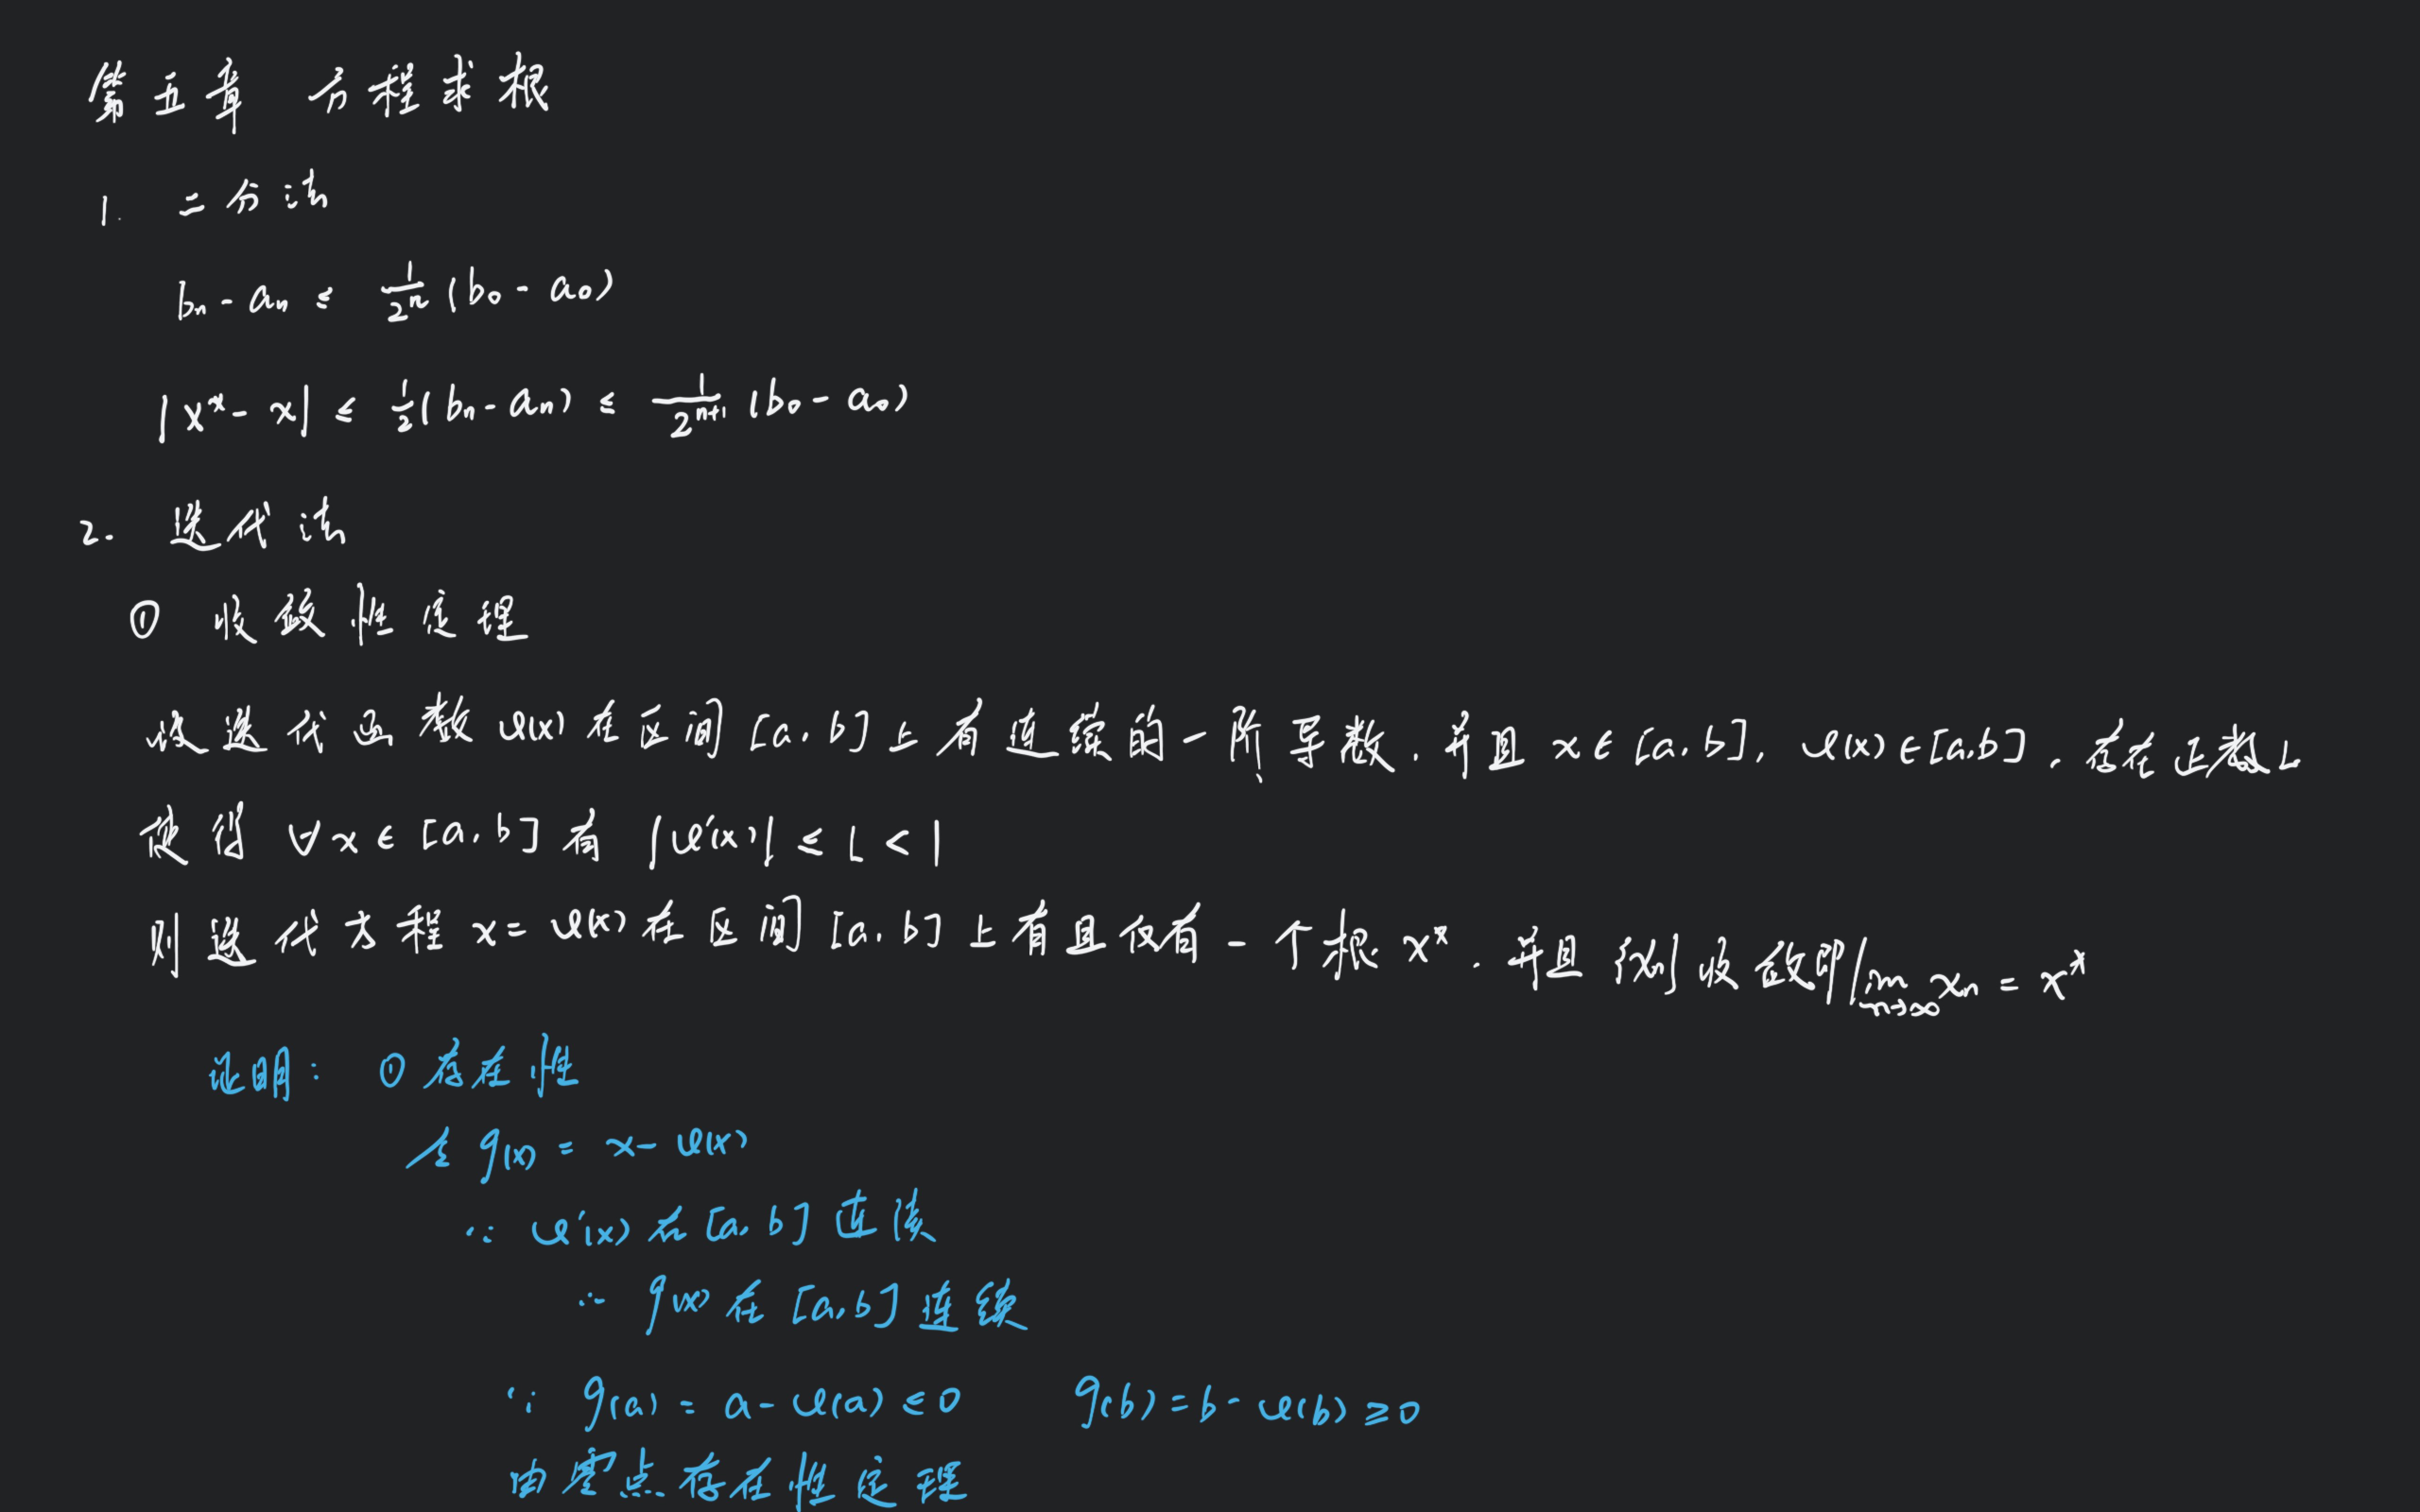 第五章 方程求根
1. 二分法
bₙ - aₙ ≤ 1/2ⁿ (b₀ - a₀)
|x* - x| ≤ 1/2 (bₙ - aₙ) ≤ 1/2ⁿ⁺¹ (b₀ - a₀)
2. 迭代法
① 收敛性定理
设迭代函数 φ(x) 在区间 [a, b] 上有连续的一阶导数, 并且 x ∈ [a, b], φ(x) ∈ [a, b]. 存在正数 L
使得 ∀x ∈ [a, b] 有 |φ'(x)| ≤ L < 1
则迭代方程 x = φ(x) 在区间 [a, b] 上有且仅有一个根 x*. 并且 {xₙ} 收敛即 lim n→∞ xₙ = x*
证明: ① 存在性
令 g(x) = x - φ(x)
∵ φ'(x) 在 [a, b] 连续
∴ g(x) 在 [a, b] 连续
∵ g(a) = a - φ(a) ≤ 0 g(b) = b - φ(b) ≥ 0
由零点存在性定理